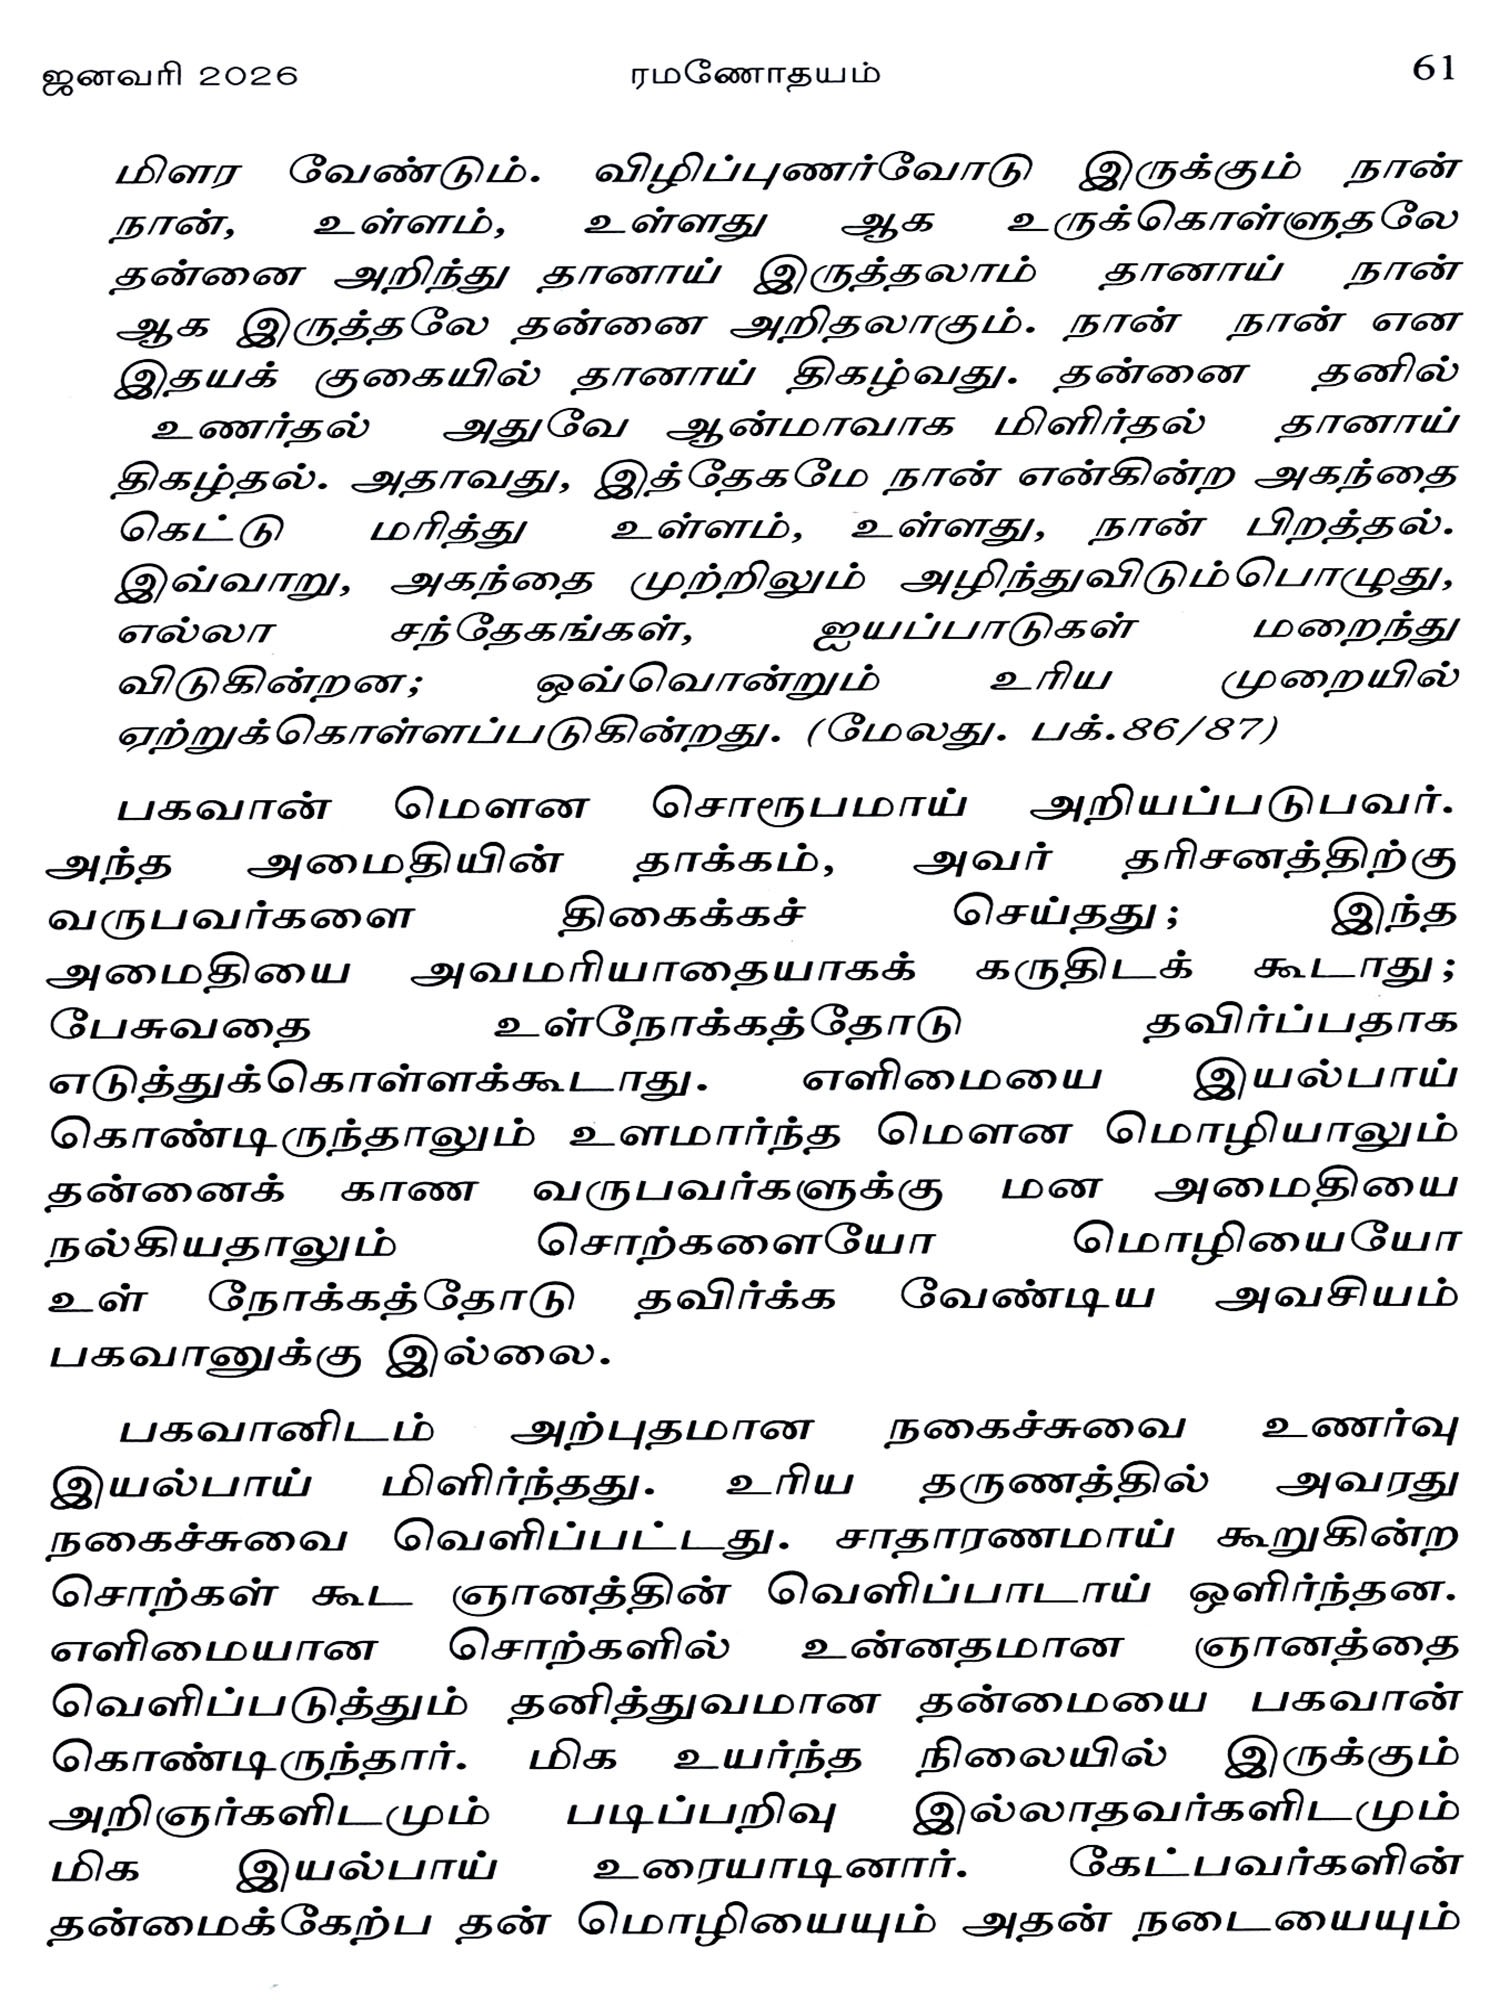 ஜனவரி 2026 ரமணோதயம் 61
மிளர வேண்டும். விழிப்புணர்வோடு இருக்கும் நான்
நான், உள்ளம், உள்ளது ஆக உருக்கொள்ளுதலே
தன்னை அறிந்து தானாய் இருத்தலாம் தானாய் நான்
ஆக இருத்தலே தன்னை அறிதலாகும். நான் நான் என
இதயக் குகையில் தானாய் திகழ்வது. தன்னை தனில்
உணர்தல் அதுவே ஆன்மாவாக மிளிர்தல் தானாய்
திகழ்தல். அதாவது, இத்தேகமே நான் என்கின்ற அகந்தை
கெட்டு மரித்து உள்ளம், உள்ளது, நான் பிறத்தல்.
இவ்வாறு, அகந்தை முற்றிலும் அழிந்துவிடும்பொழுது,
எல்லா சந்தேகங்கள், ஐயப்பாடுகள் மறைந்து
விடுகின்றன; ஒவ்வொன்றும் உரிய முறையில்
ஏற்றுக்கொள்ளப்படுகின்றது. (மேலது. பக்.86/87)
பகவான் மௌன சொரூபமாய் அறியப்படுபவர்.
அந்த அமைதியின் தாக்கம், அவர் தரிசனத்திற்கு
வருபவர்களை திகைக்கச் செய்தது; இந்த
அமைதியை அவமரியாதையாகக் கருதிடக் கூடாது;
பேசுவதை உள்நோக்கத்தோடு தவிர்ப்பதாக
எடுத்துக்கொள்ளக்கூடாது. எளிமையை இயல்பாய்
கொண்டிருந்தாலும் உளமார்ந்த மௌன மொழியாலும்
தன்னைக் காண வருபவர்களுக்கு மன அமைதியை
நல்கியதாலும் சொற்களையோ மொழியையோ
உள் நோக்கத்தோடு தவிர்க்க வேண்டிய அவசியம்
பகவானுக்கு இல்லை.
பகவானிடம் அற்புதமான நகைச்சுவை உணர்வு
இயல்பாய் மிளிர்ந்தது. உரிய தருணத்தில் அவரது
நகைச்சுவை வெளிப்பட்டது. சாதாரணமாய் கூறுகின்ற
சொற்கள் கூட ஞானத்தின் வெளிப்பாடாய் ஒளிர்ந்தன.
எளிமையான சொற்களில் உன்னதமான ஞானத்தை
வெளிப்படுத்தும் தனித்துவமான தன்மையை பகவான்
கொண்டிருந்தார். மிக உயர்ந்த நிலையில் இருக்கும்
அறிஞர்களிடமும் படிப்பறிவு இல்லாதவர்களிடமும்
மிக இயல்பாய் உரையாடினார். கேட்பவர்களின்
தன்மைக்கேற்ப தன் மொழியையும் அதன் நடையையும்